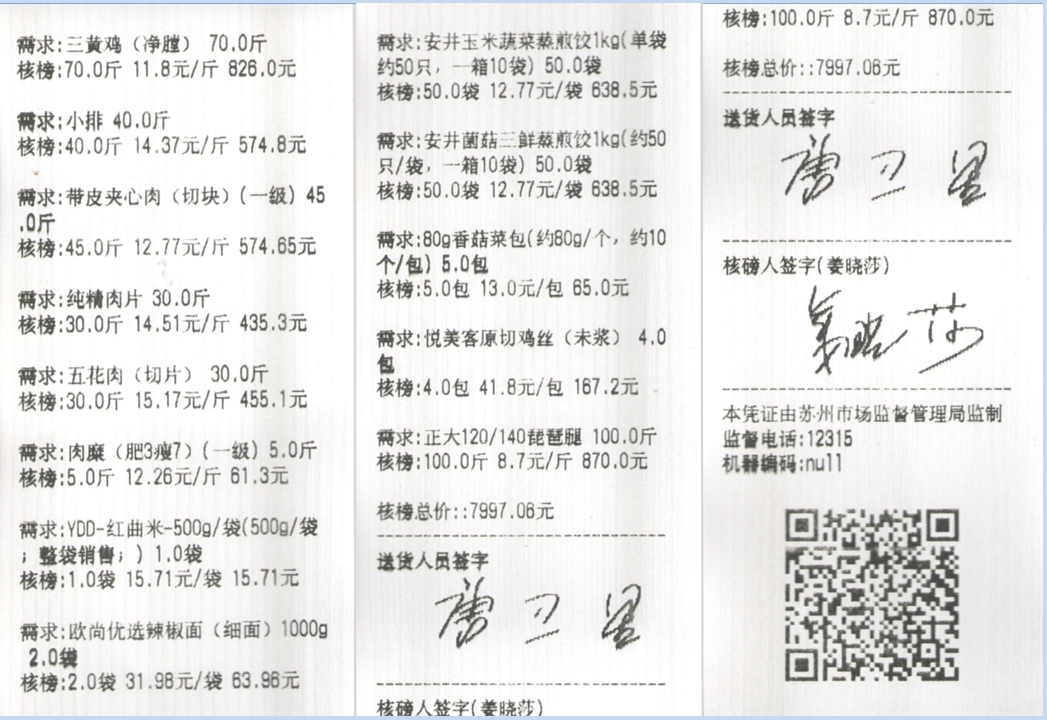 需求:三黄鸡（净膛） 70.0斤
核榜:70.0斤 11.8元/斤 826.0元
需求:小排 40.0斤
核榜:40.0斤 14.37元/斤 574.8元
需求:带皮夹心肉（切块）(一级) 45
.0斤
核榜:45.0斤 12.77元/斤 574.65元
需求:纯精肉片 30.0斤
核榜:30.0斤 14.51元/斤 435.3元
需求:五花肉（切片） 30.0斤
核榜:30.0斤 15.17元/斤 455.1元
需求:肉糜（肥3瘦7）(一级) 5.0斤
核榜:5.0斤 12.26元/斤 61.3元
需求:YDD-红曲米-500g/袋(500g/袋
；整袋销售；) 1.0袋
核榜:1.0袋 15.71元/袋 15.71元
需求:欧尚优选辣椒面（细面）1000g
2.0袋
核榜:2.0袋 31.98元/袋 63.96元
需求:安井玉米蔬菜蒸煎饺1kg(单袋
约50只，一箱10袋) 50.0袋
核榜:50.0袋 12.77元/袋 638.5元
需求:安井菌菇三鲜蒸煎饺1kg(约50
只/袋，一箱10袋) 50.0袋
核榜:50.0袋 12.77元/袋 638.5元
需求:80g香菇菜包(约80g/个，约10
个/包) 5.0包
核榜:5.0包 13.0元/包 65.0元
需求:悦美客原切鸡丝（未浆） 4.0
包
核榜:4.0包 41.8元/包 167.2元
需求:正大120/140琵琶腿 100.0斤
核榜:100.0斤 8.7元/斤 870.0元
核榜总价::7997.06元
送货人员签字
核磅人签字(姜晓莎)
核榜:100.0斤 8.7元/斤 870.0元
核榜总价::7997.06元
送货人员签字
核磅人签字(姜晓莎)
姜晓莎
本凭证由苏州市场监督管理局监制
监督电话:12315
机器编码:null